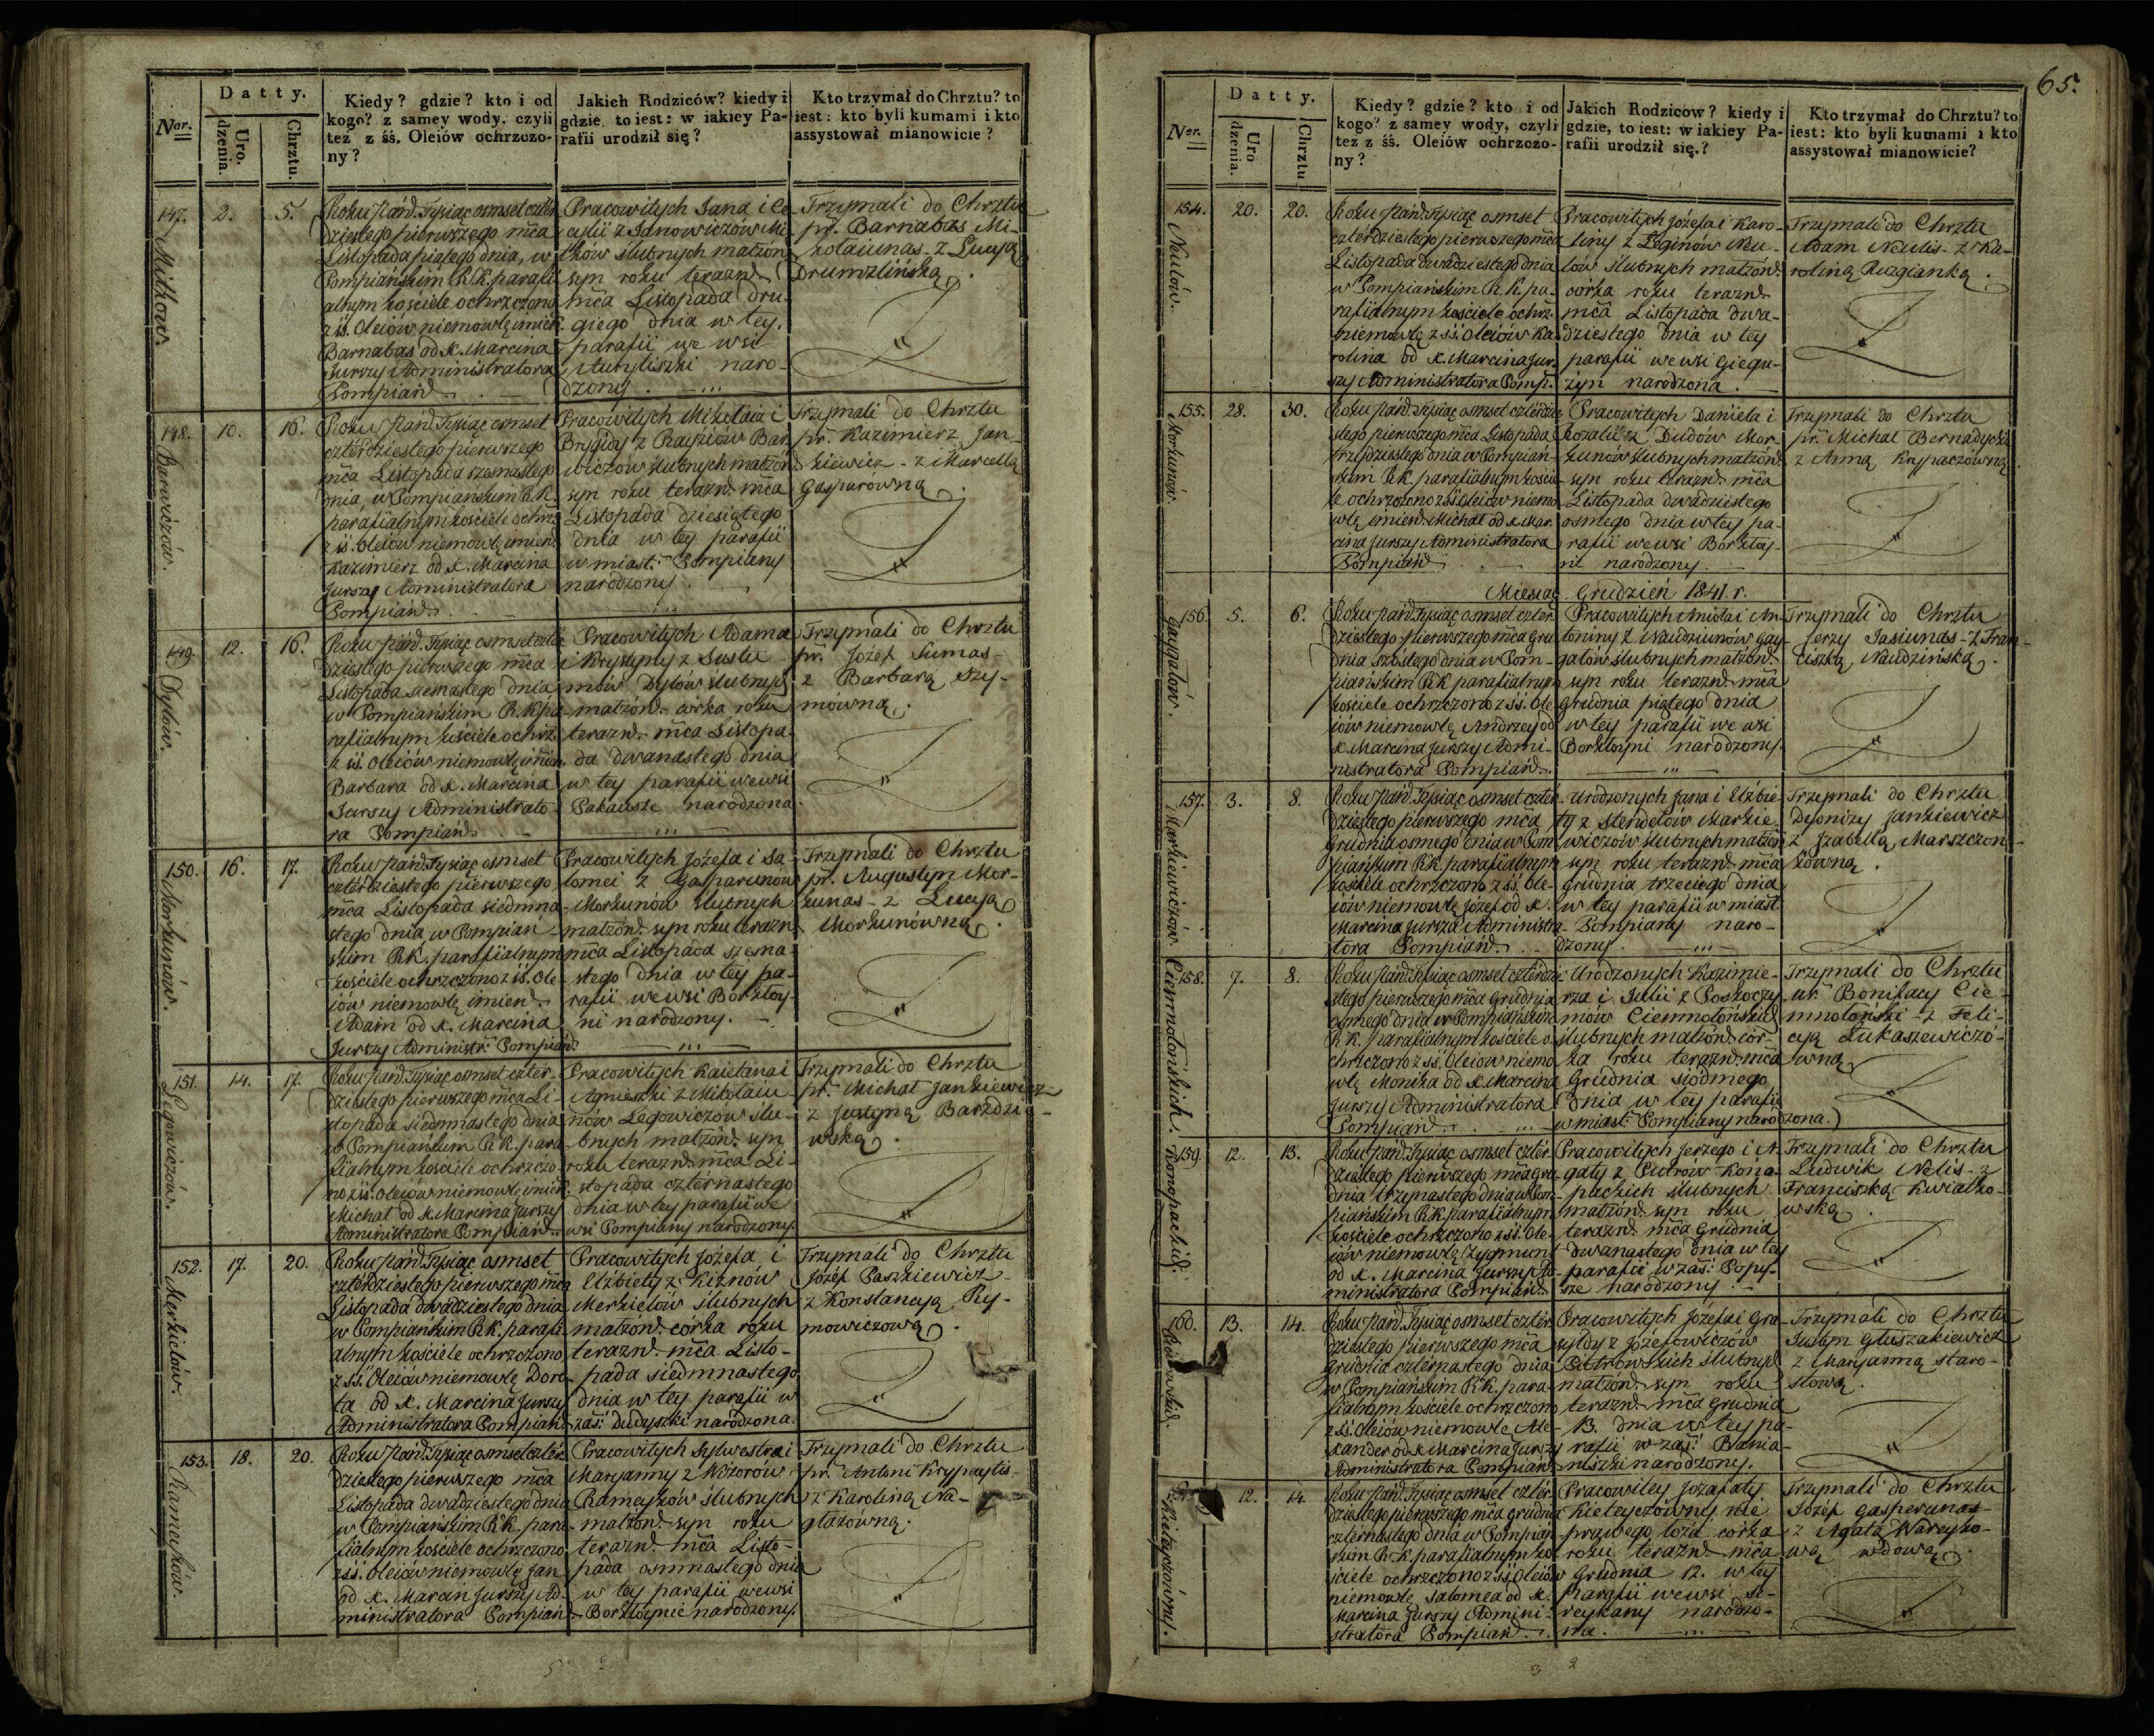 Ner.
Datty.
Urodzenia.
Chrztu.
Kiedy? gdzie? kto i od
kogo? z samey wody, czyli
też z śś. Oleiów ochrzczo-
ny?
Jakich Rodziców? kiedy i
gdzie, to iest: w iakiey Pa-
rafii urodził się?
Kto trzymał do Chrztu? to
iest: kto byli kumami i kto
assystował mianowicie?
147.
2.
5.
Roku Pańd. Tysiąc osmset czter-
dziestego pierwszego mca
Listopada piątego dnia, w
Pompiańskim R.K. parafi-
alnym kościele ochrzczono
z śś. Oleiów niemowlę imien.
Barnabas od X. Marcina
Jurszy Administratora
Pompiańd.
Pracowitych Jana i Ce-
cylii z Janowiczów Mi-
tków ślubnych małżon.
syn roku terazn.
mca Listopada dru-
giego dnia w tey
parafii we wsi
narodzony.
Trzymali do Chrztu
pr. Barnabas Mi-
kołaiunas z Łucyą
Drumzlińską.
148.
10.
16.
Roku Pańd. Tysiąc osmset
czterdziestego pierwszego
mca Listopada szesnastego
dnia, w Pompiańskim R.K.
parafialnym kościele ochrz.
z śś. Oleiów niemowlę imien.
Kazimierz od X. Marcina
Jurszy Administratora
Pompiańd.
Pracowitych Mikołaia i
Brygidy z Rayziów Bar-
wiczów ślubnych małżon.
syn roku terazn. mca
Listopada dziesiątego
dnia w tey parafii
w miast. Pompiany
narodzony.
Trzymali do Chrztu
pr. Kazimierz Jan-
kiewicz z Marcellą
Gasparowną.
149.
Dylów.
12.
16.
Roku Pańd. Tysiąc osmset czter-
dziestego pierwszego mca
Listopada szesnastego dnia
w Pompiańskim R.K. pa-
rafialnym kościele ochrz.
z śś. Oleiów niemowlę imien.
Barbara od X. Marcina
Jurszy Administrato-
ra Pompiańd.
Pracowitych Adama
i Krystyny z
Dylów ślubnych
małżon. córka roku
terazn. mca Listopa-
da dwunastego dnia
w tey parafii we wsi
Pakausze narodzona.
Trzymali do Chrztu
pr. Józef Sumas
z Barbarą Szy-
mówną.
150.
Morkunów.
16.
17.
Roku Pańd. Tysiąc osmset
czterdziestego pierwszego
mca Listopada siedmna-
stego dnia w Pompiań-
skim R.K. parafialnym
kościele ochrzczono z śś. Ole-
iów niemowlę imien.
Adam od X. Marcina
Jurszy Administr. Pompiańd.
Pracowitych Józefa i Sa-
lomei z Gasparunow
Morkunów ślubnych
małżon. syn roku terazn.
mca Listopada szesna-
stego dnia w tey pa-
rafii we wsi Borkłoy-
ni narodzony.
Trzymali do Chrztu
pr. Augustyn Mor-
kunas z Łucyą
Morkunówną.
151.
Legowiczów.
14.
17.
Roku Pańd. Tysiąc osmset czter-
dziestego pierwszego mca Li-
stopada siedmnastego dnia
w Pompiańskim R.K. para-
fialnym kościele ochrzczo-
no z śś. Oleiów niemowlę imien.
Michał od X. Marcina Jurszy
Administratora Pompiańd.
Pracowitych Kaietana i
Agnieszki z Mikołaiu-
nów Legowiczów ślu-
bnych małżon. syn
roku terazn. mca Li-
stopada czternastego
dnia w tey parafii we
wsi Pompiany narodzony.
Trzymali do Chrztu
pr. Michał Jankiewicz
z Justyną Barzdzie-
wską.
152.
Merkielów.
17.
20.
Roku Pańd. Tysiąc osmset
czterdziestego pierwszego mca
Listopada dwudziestego dnia
w Pompiańskim R.K. parafi-
alnym kościele ochrzczono
z śś. Oleiów niemowlę Doro-
ta od X. Marcina Jurszy
Administratora Pompiańd.
Pracowitych Józefa i
Elżbiety z Kiznów
Merkielów ślubnych
małżon. corka roku
terazn. mca Listo-
pada siedmnastego
dnia w tey parafii w
zaś. Dudyszki narodzona.
Trzymali do Chrztu
Józef Paszkiewicz
z Konstancyą Ry-
mowiczową.
153.
Rameyków.
18.
20.
Roku Pańd. Tysiąc osmset czter-
dziestego pierwszego mca
Listopada dwudziestego dnia
w Pompiańskim R.K. para-
fialnym kościele ochrzczono
z śś. Oleiów niemowlę Jan
od X. Marcin Jurszy Ad-
ministratora Pompiań.
Pracowitych Sylwestra i
Maryanny z Wótorów
Rameyków ślubnych
małżon. syn roku
terazn. mca Listo-
pada osmnastego dnia
w tey parafii we wsi
Borkłoynie narodzony.
Trzymali do Chrztu
pr. Antoni Krypaytis
z Karoliną Na-
glazówną.
65.
Ner.
Datty.
Urodzenia.
Chrztu
Kiedy? gdzie? kto i od
kogo? z samey wody, czyli
też z śś. Oleiów ochrzczo-
ny?
Jakich Rodziców? kiedy i
gdzie, to iest: w iakiey Pa-
rafii urodził się.?
Kto trzymał do Chrztu? to
iest: kto byli kumami i kto
assystował mianowicie?
154.
Neulów.
20.
20.
Roku Pańd. Tysiąc osmset
czterdziestego pierwszego mca
Listopada dwudziestego dnia
w Pompiańskim R.K. pa-
rafialnym kościele ochrz.
niemowlę z śś. Oleiów Ka-
rolina od X. Marcina Jur-
szy Administratora Pomp.
Pracowitych Józefa i Karo-
liny z Leginów Neu-
lów ślubnych małżon.
corka roku terazn.
mca Listopada dwu-
dziestego dnia w tey
parafii we wsi Giegu-
żyn narodzona.
Trzymali do Chrztu
Adam Neulis z Ka-
roliną Ruzgianką.
155.
Morkunów.
28.
30.
Roku Pańd. Tysiąc osmset czterdzie-
stego pierwszego mca Listopada
trzydziestego dnia w Pompiań-
skim R.K. parafialnym kościo-
le ochrzczono z śś. Oleiów niemo-
wlę imien. Michał od X. Mar-
cina Jurszy Administratora
Pompiańd.
Pracowitych Daniela i
Rozalii z Dudów Mor-
kunów ślubnych małżon.
syn roku terazn. mca
Listopada dwudziestego
osmego dnia w tey pa-
rafii we wsi Borkłoy-
ni narodzony.
Trzymali do Chrztu
pr. Michał Bernadycki
z Anną Krypaczówną.
Miesiąc Grudzień 1841. r.
156.
Gaygałów.
5.
6.
Roku Pańd. Tysiąc osmset czter-
dziestego pierwszego mca Gru-
dnia szóstego dnia w Pom-
piańskim R.K. parafialnym
kościele ochrzczono z śś. Ole-
iów niemowlę Andrzey od
X. Marcina Jurszy Admi-
nistratora Pompiańd.
An-
toniny z Naudziunów Gay-
gałów ślubnych małżon.
syn roku terazn. mca
Grudnia piątego dnia
w tey parafii we wsi
Borkłoyni narodzony.
Trzymali do Chrztu
Jerzy Jasiunas z Fran-
ciszką Naudzińską.
157.
Markiewiczów
3.
8.
Roku Pańd. Tysiąc osmset czter-
dziestego pierwszego mca
Grudnia osmego dnia w Pom-
piańskim R.K. parafialnym
kościele ochrzczono z śś. Ole-
iów niemowlę Józef od X.
Marcina Jursza Administra-
tora Pompiańd.
Urodzonych Jana i Elżbie-
ty z Stendelów Markie-
wiczów ślubnych małżon.
syn roku terazn. mca
Grudnia trzeciego dnia
w tey parafii w miast.
Pompiany naro-
dzony.
Trzymali do Chrztu
Dyonizy Jankiewicz
z Izabellą Marszczon-
kówną.
158.
Ciemnołońskich.
7.
8.
Roku Pańd. Tysiąc osmset czterdzie-
stego pierwszego mca Grudnia
osmego dnia w Pompiańskim
R.K. parafialnym kościele o-
chrzczono z śś. Oleiów niemo-
wlę Monika od X. Marcina
Jurszy Administratora
Pompiańd.
Urodzonych Kazimie-
rza i Julii z Poskoczy-
mów Ciemnołońskich
ślubnych małżon. cór-
ka roku terazn. mca
Grudnia siódmego
dnia w tey parafii
w miast. Pompiany narodzona.
Trzymali do Chrztu
ur. Bonifacy Cie-
mnołoński z Feli-
cyą Łukaszewiczó-
wną.
159.
Konopackich.
12.
13.
Roku Pańd. Tysiąc osmset czter-
dziestego pierwszego mca Gru-
dnia trzynastego dnia w Pom-
piańskim R.K. parafialnym
kościele ochrzczono z śś. Ole-
iów niemowlę Zygmunt
od X. Marcina Jurszy Ad-
ministratora Pompiańd.
Pracowitych Jerzego i A-
gaty z Butrów Kono-
packich ślubnych
małżon. syn roku
terazn. mca Grudnia
dwunastego dnia w tey
parafii w zaś. Popy-
sze narodzony.
Trzymali do Chrztu
Ludwik Nelis z
Franciszką Kwiatko-
wską.
160.
13.
14.
Roku Pańd. Tysiąc osmset czter-
dziestego pierwszego mca
Grudnia czternastego dnia
w Pompiańskim R.K. para-
fialnym kościele ochrzczono
z śś. Oleiów niemowlę Ale-
xander od X. Marcina Jurszy
Administratora Pompiańd.
Pracowitych Józefa i Gra-
syldy z Józefowiczów
Piotrowskich ślubnych
małżon. syn roku
terazn. mca Grudnia
13. dnia w tey pa-
rafii w zaś.
narodzony.
Trzymali do Chrztu
Justyn Głuszakiewicz
z Maryanną Staro-
stową.
Kieleyczówny.
12.
14.
Roku Pańd. Tysiąc osmset czter-
dziestego pierwszego mca Grudnia
czternastego dnia w Pompiań-
skim R.K. parafialnym ko-
ściele ochrzczono z śś. Oleiów
niemowlę Salomea od X.
Marcina Jurszy Admini-
stratora Pompiań.
Pracowitey Jozafaty
Kieleyczówny nie
prawego łoża corka
roku terazn. mca
Grudnia 12. w tey
parafii we wsi Se-
reykany narodzo-
na.
Trzymali do Chrztu
Józef Gasperunas
z Agatą Nareyko-
wą wdową.